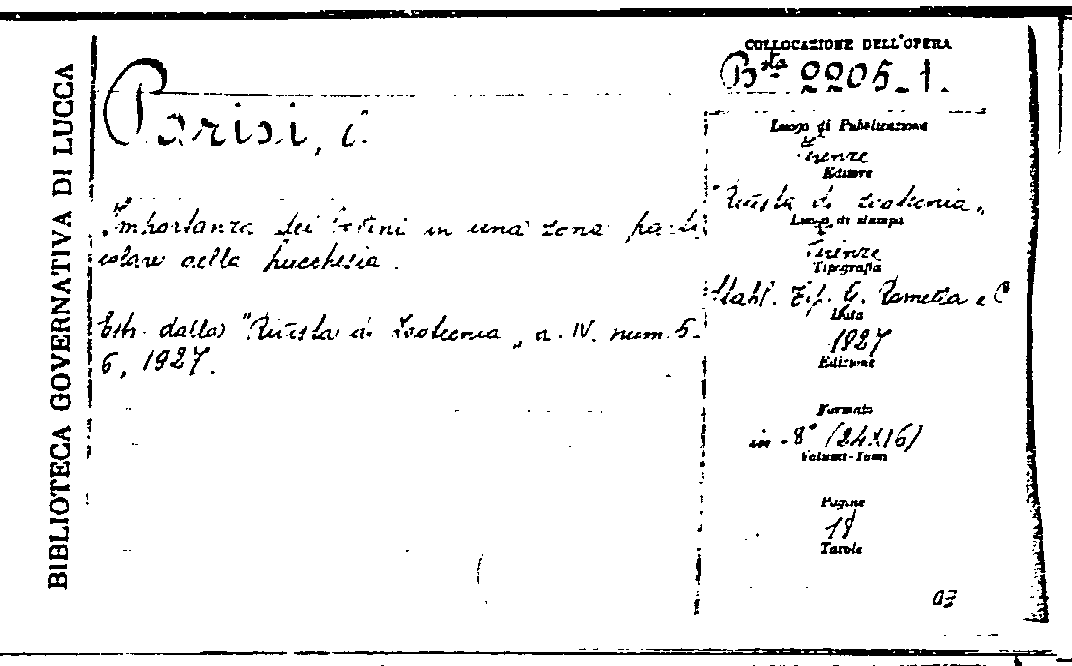 BIBLIOTECA GOVERNATIVA DI LUCCA
COLLOCAZIONE DELL'OPERA
B.sta 2205-1.
Parisi, i.
Importanza dei in una zona parti
colare della Lucchesia.
Estr. dalla "Rivista di Zootecnia„ a. IV. num. 5-
6, 1927.
Luogo di Pubblicazione
Firenze
Editore
"Rivista di Zootecnia„
Luogo di stampa
Firenze
Tipografia
Stabl. Tip. G. Ramella e C°
Data
1927
Edizione
Formato
in-8° (24X16)
Volumi-Tomi
Pagine
18
Tavole